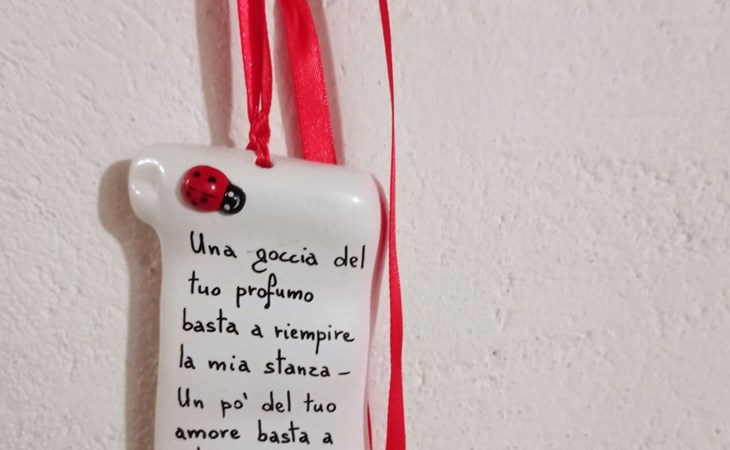 Una goccia del
tuo profumo
basta a riempire
la mia stanza –
Un po' del tuo
amore basta a